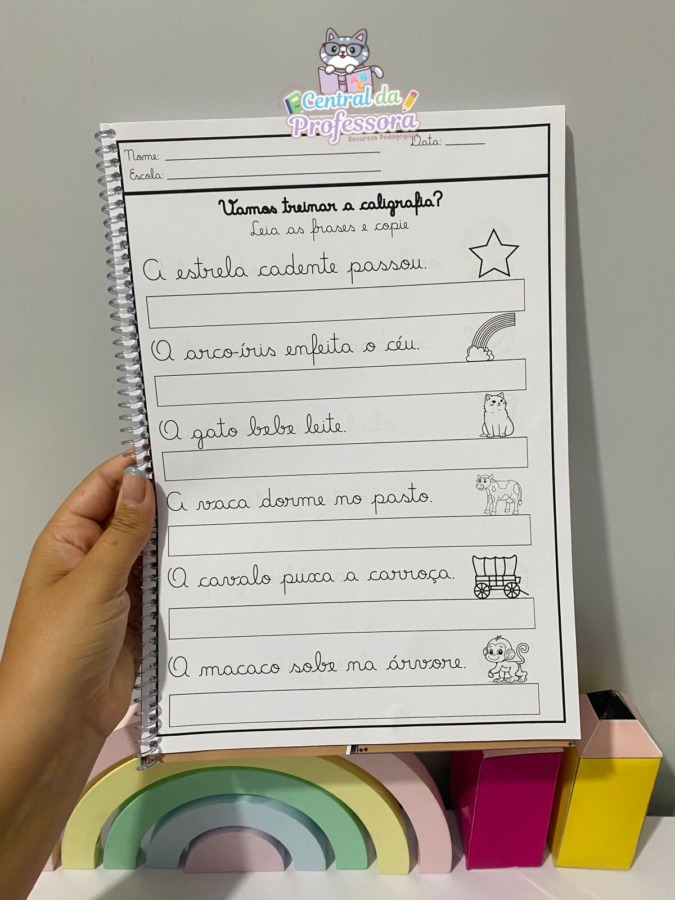 Central da
Professora
Recursos Pedagógicos
Nome: Data:
Escola:
Vamos treinar a caligrafia?
Leia as frases e copie
A estrela cadente passou.
O arco-íris enfeita o céu.
O gato bebe leite.
A vaca dorme no pasto.
O cavalo puxa a carroça.
O macaco sobe na árvore.